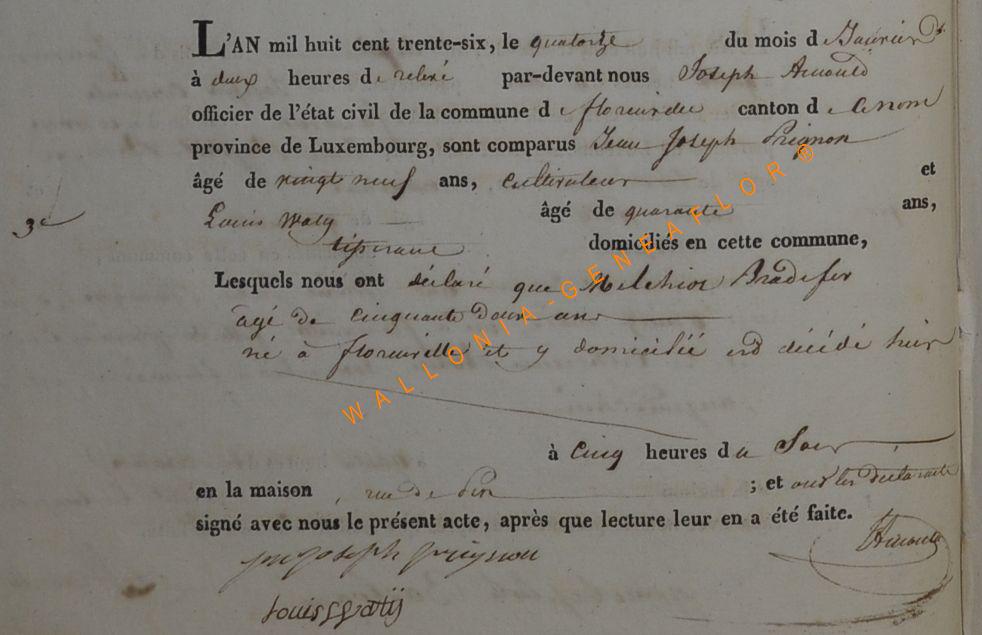 L'AN mil huit cent trente-six, le quatorze du mois de Janvier
à deux heures de relevé par-devant nous Joseph Arnould
officier de l'état civil de la commune de florenville canton de
province de Luxembourg, sont comparus Jean Joseph Prignon
âgé de vingt neuf ans, cultivateur et
Louis Waty âgé de quarante ans,
tisserand domiciliés en cette commune,
3e
Lesquels nous ont déclaré que Melchior Bradefer
agé de cinquante Douze ans
né à florenville et y domicilié est décédé hier
à cinq heures du Soir
en la maison, rue de ; et ont les déclarants
signé avec nous le présent acte, après que lecture leur en a été faite.
Joseph prignon Arnould
louis Watij
WALLONIA-GENEAFLOR®